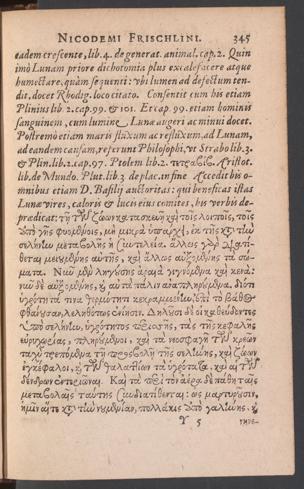 NICODEMI FRISCHLINI. 345
eadem crescente, lib. 4. de generat. animal. cap. 2. Quin
imò Lunam priore dichotomia plus excalefacere atque
humectare, quàm sequenti: vbi lumen ad defectum ten-
dit, docet Rhodig. loco citato. Consentit cum his etiam
Plinius lib 2. cap. 99. & 101. Et cap. 99. etiam hominis
sanguinem, cum lumine Lunæ augeri ac minui docet.
Postremò etiam maris fluxum ac refluxum, ad Lunam,
ad eandem causam, referunt Philosophi, vt Strabo lib. 3.
& Plin. lib. 2. cap. 97. Ptolem lib. 2. Aristot.
lib. de Mundo. Plut. lib. 3 de plac. in fine Accedit his o-
mnibus etiam D. Basilij auctoritas: qui beneficas istas
Lunæ vires, caloris & lucis eius comites, his verbis de-
prædicat: τῇ τῶν ζώων κατασκευῇ καὶ τοῖς λοιποῖς, τοῖς
ὑπὸ γῆς φυομένοις, μὴ μικρὰ ὑπάρχῃ, ἐκ τῆς κατὰ τὴν
σελήνην μεταβολῆς ἡ συντέλεια. ἄλλως γὰρ διατί-
θεται μειουμένης αὐτῆς, καὶ ἄλλως αὐξομένης τὰ σώ-
ματα. Νῦν μὲν ληγούσης ἀραιὰ γινόμενα καὶ κενά:
νῦν δὲ αὐξομένης, καὶ πάλιν ἀναπληρούμενα. διότι
ὑγρότητά τινα θερμότητι κεκραμένην, ἐπὶ τὸ βάθος
Δηλοῦσι δὲ οἱ καθεύδοντες
ὑπὸ σελήνην, ὑγρότητος τὰς τῆς κεφαλῆς
εὐρυχωρίας, πληρούμενοι, καὶ τὰ νεοσφαγῆ τῶν κρεῶν
ταχὺ τρεπόμενα τῇ προσβολῇ τῆς σελήνης, καὶ ζώων
ἐγκέφαλοι, καὶ τῶν θαλαττίων τὰ ὑγρότατα. καὶ αἱ τῶν
δένδρων ἐντεριῶναι. Καὶ τὰ περὶ τὸν ἀέρα δὲ πάθη ταῖς
μεταβολαῖς ταύτης συνδιατίθεται: ὡς μαρτυροῦσιν,
ἡμῖν αἵτε κατὰ τὴν νουμηνίαν, πολλάκις ὑπὸ γαλήνης, καὶ
Y 5